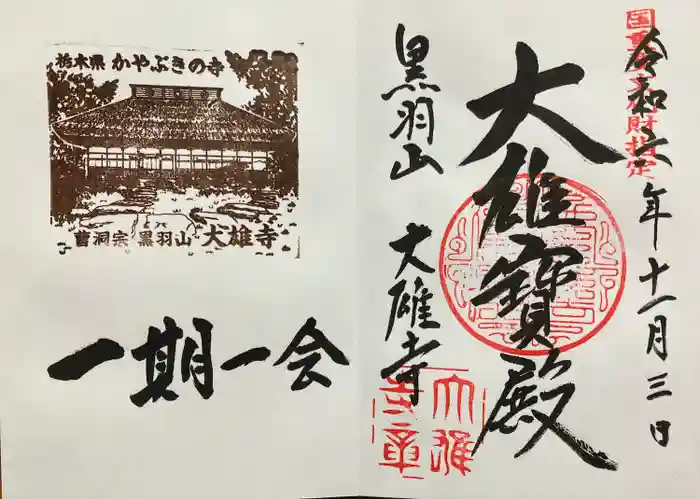 国重要文化財指定
令和六年十一月三日
大雄寳殿
黒羽山 大雄寺
大雄寺之章
栃木県 かやぶきの寺
曹洞宗 黒羽山 大雄寺
一期一会